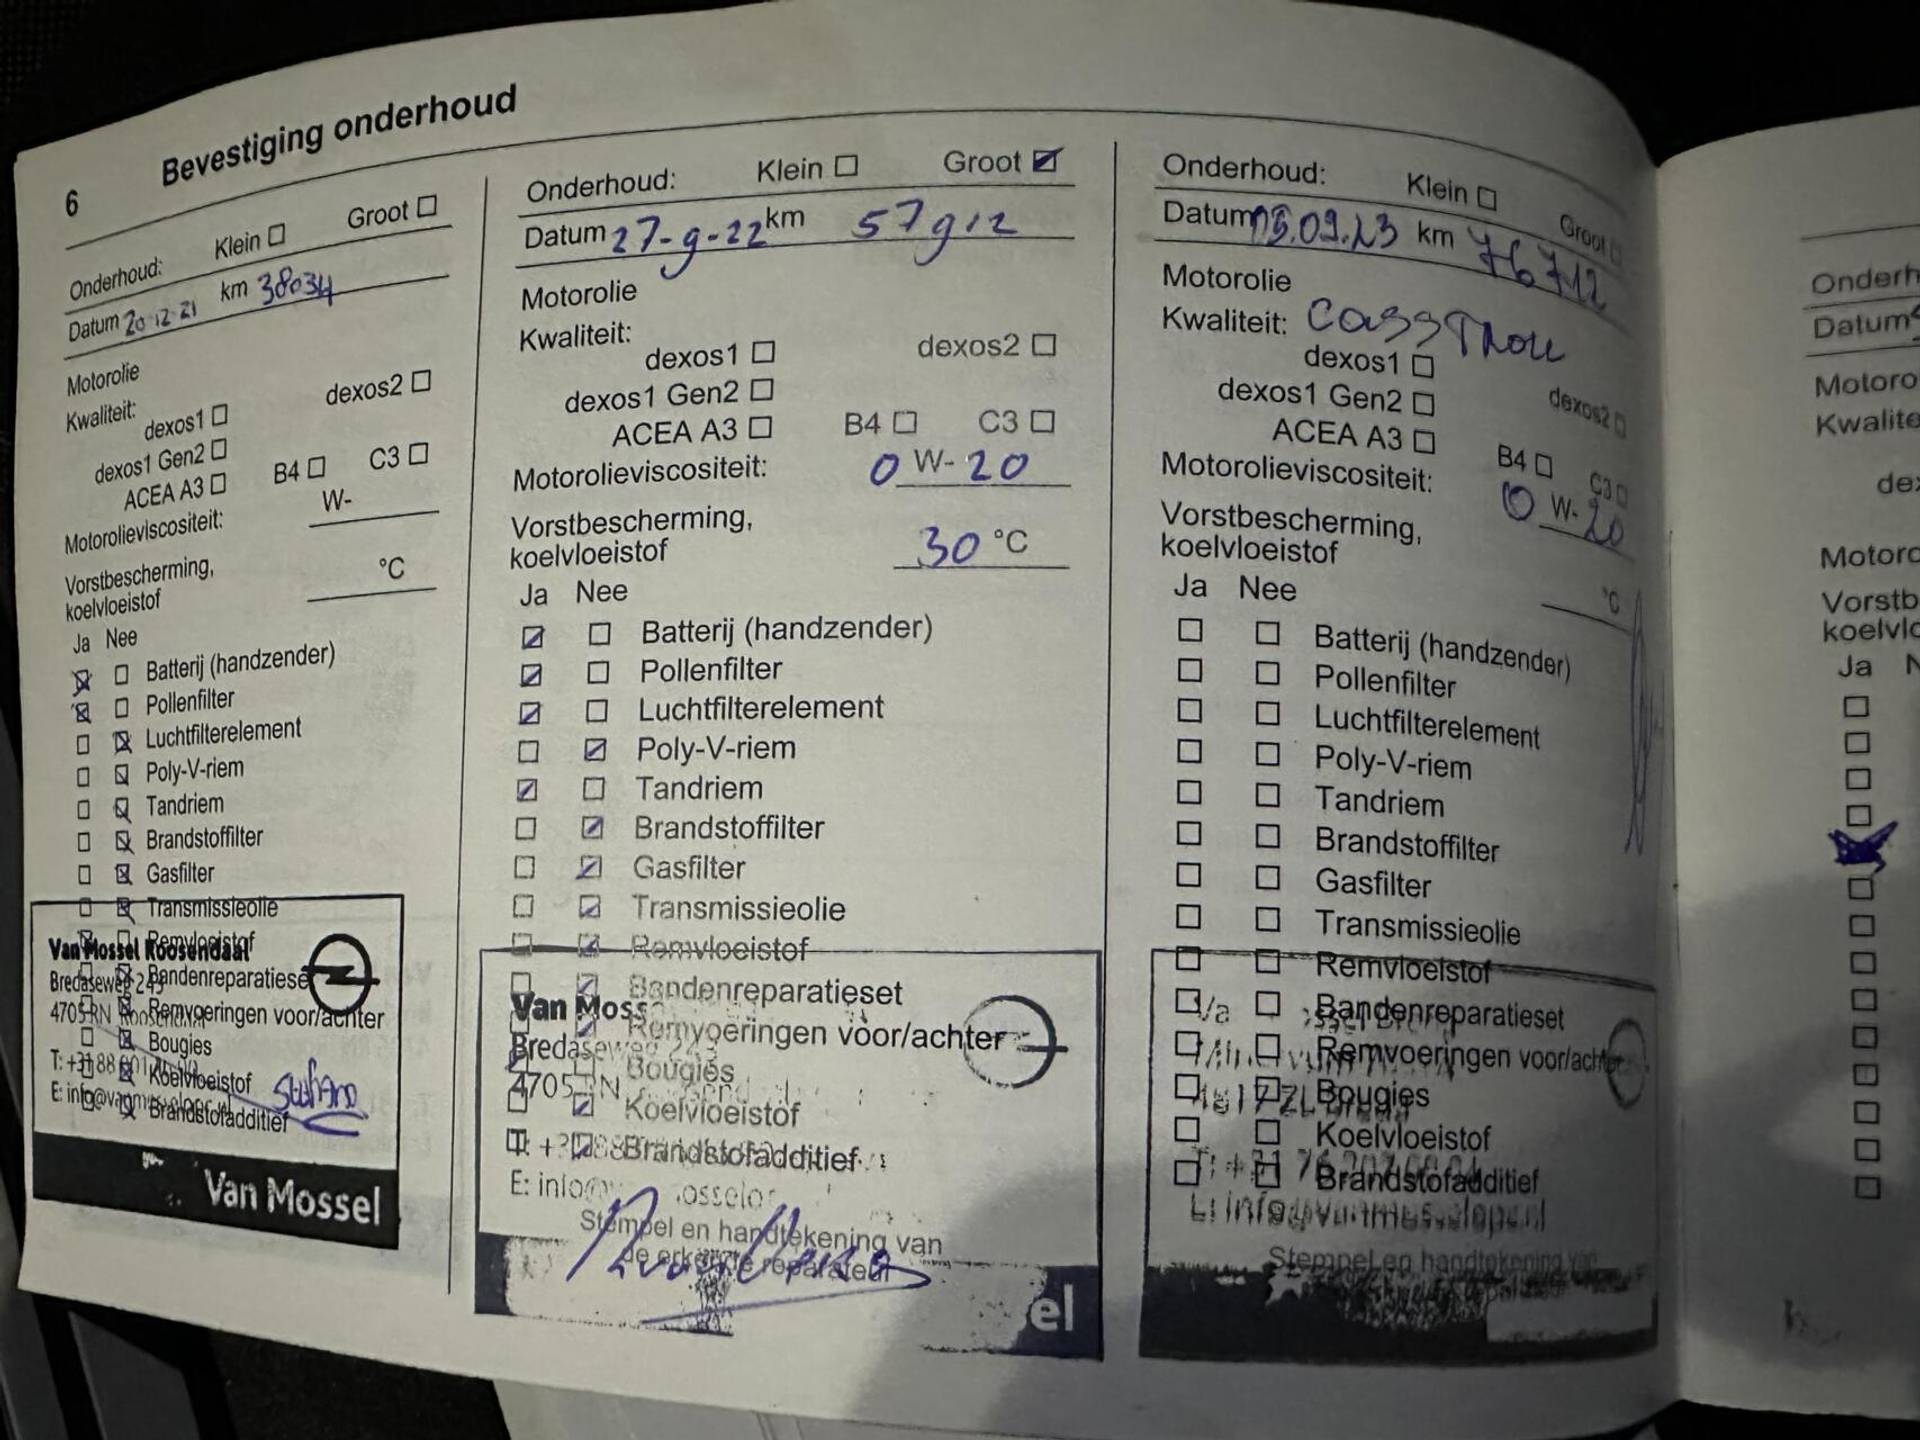 6 Bevestiging onderhoud
Onderhoud: Klein Groot
Datum 20-12-21 km 38034
Motorolie
Kwaliteit:
dexos1 dexos2
dexos1 Gen2
ACEA A3 B4 C3
Motorolieviscositeit: W-
Vorstbescherming,
koelvloeistof °C
Ja Nee
Batterij (handzender)
Pollenfilter
Luchtfilterelement
Poly-V-riem
Tandriem
Brandstoffilter
Gasfilter
Transmissieolie
Remvloeistof
Van Mossel Roosendaal
Bandenreparatieset
Bredaseweg 243
Remvoeringen voor/achter
4705 RN Roosendaal
Bougies
Koelvloeistof
Brandstofadditief
Van Mossel
Onderhoud: Klein Groot
Datum 27-9-22 km 57912
Motorolie
Kwaliteit:
dexos1 dexos2
dexos1 Gen2
ACEA A3 B4 C3
Motorolieviscositeit: 0 W- 20
Vorstbescherming,
koelvloeistof 30 °C
Ja Nee
Batterij (handzender)
Pollenfilter
Luchtfilterelement
Poly-V-riem
Tandriem
Brandstoffilter
Gasfilter
Transmissieolie
Remvloeistof
Bandenreparatieset
Van
Remvoeringen voor/achter
Bredaseweg 243
Bougies
4705
Koelvloeistof
Brandstofadditief
Stempel en handtekening van
de erkende reparateur
el
Onderhoud: Klein Groot
Datum 05.09.23 km 76712
Motorolie
Kwaliteit:
dexos1 dexos2
dexos1 Gen2
ACEA A3 B4 C3
Motorolieviscositeit: 0 W- 20
Vorstbescherming,
koelvloeistof °C
Ja Nee
Batterij (handzender)
Pollenfilter
Luchtfilterelement
Poly-V-riem
Tandriem
Brandstoffilter
Gasfilter
Transmissieolie
Remvloeistof
Bandenreparatieset
Remvoeringen voor/achter
Bougies
Koelvloeistof
Brandstofadditief
Stempel en handtekening van
Onderh
Datum
Motoro
Kwalite
dex
Motoro
Vorstb
koelvlo
Ja N